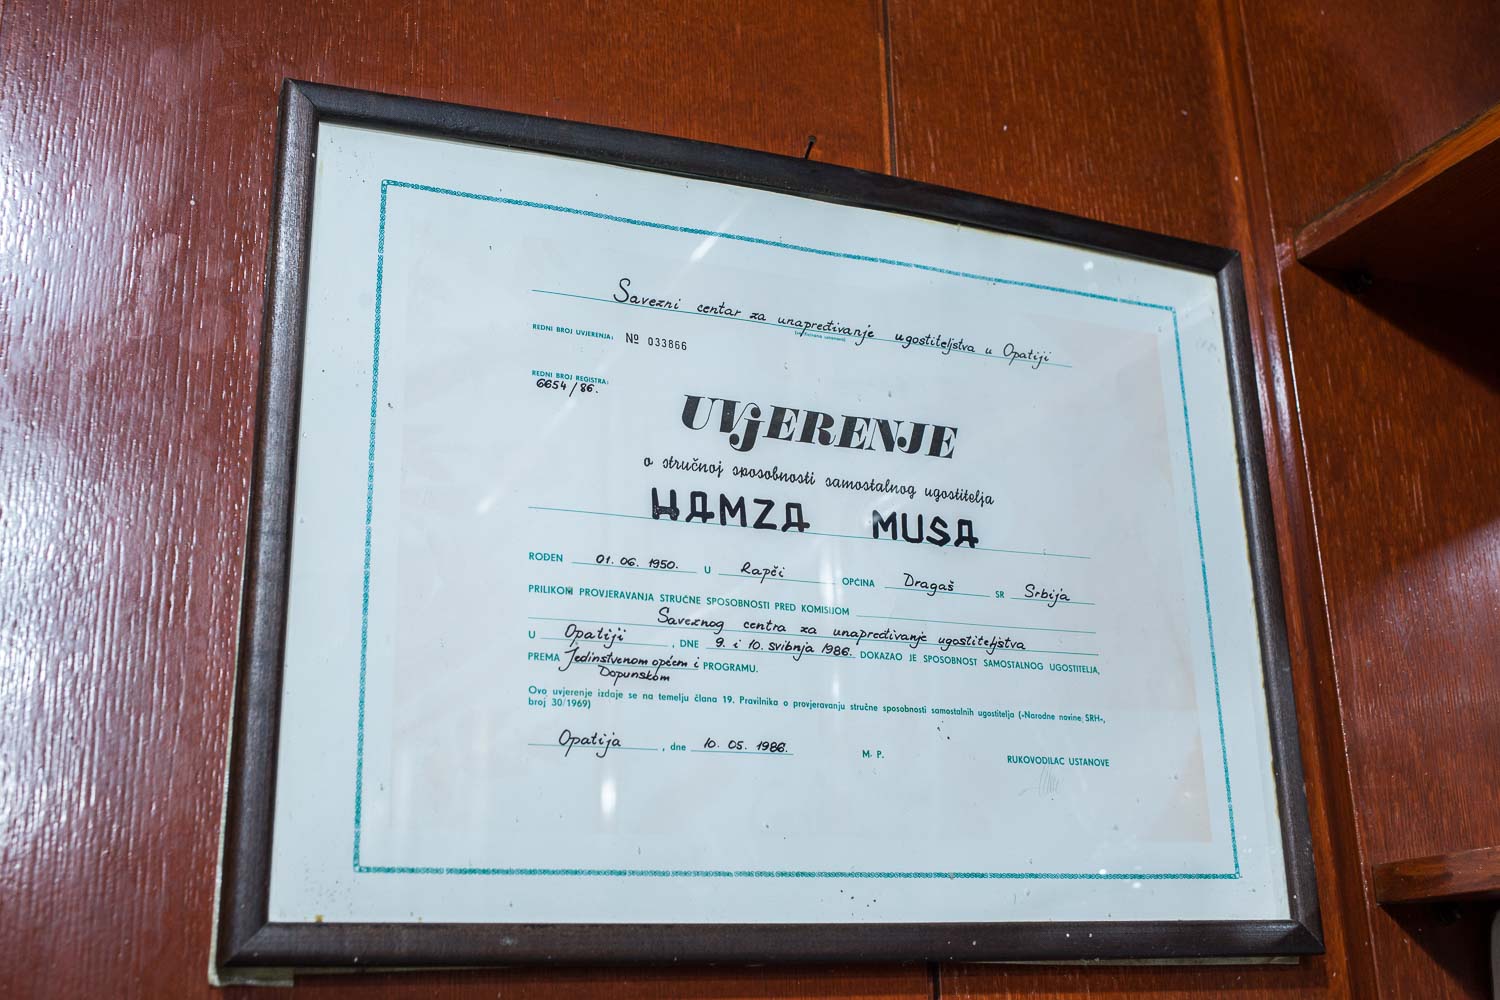 Savezni centar za unapređivanje ugostiteljstva u Opatiji
REDNI BROJ UVJERENJA: Nº 033866
REDNI BROJ REGISTRA:
6654/86.
UVjERENJE
o stručnoj sposobnosti samostalnog ugostitelja
HAMZA MUSA
ROĐEN 01. 06. 1950. U Rapči OPĆINA Dragaš SR Srbija
PRILIKOM PROVJERAVANJA STRUČNE SPOSOBNOSTI PRED KOMISIJOM
Saveznog centra za unapređivanje ugostiteljstva
U Opatiji, DNE 9. i 10. svibnja 1986. DOKAZAO JE SPOSOBNOST SAMOSTALNOG UGOSTITELJA,
PREMA Jedinstvenom općem i PROGRAMU.
Dopunskom
Ovo uvjerenje izdaje se na temelju člana 19. Pravilnika o provjeravanju stručne sposobnosti samostalnih ugostitelja (»Narodne novine SRH«,
broj 30/1969)
Opatija, dne 10. 05. 1986. M. P.
RUKOVODILAC USTANOVE